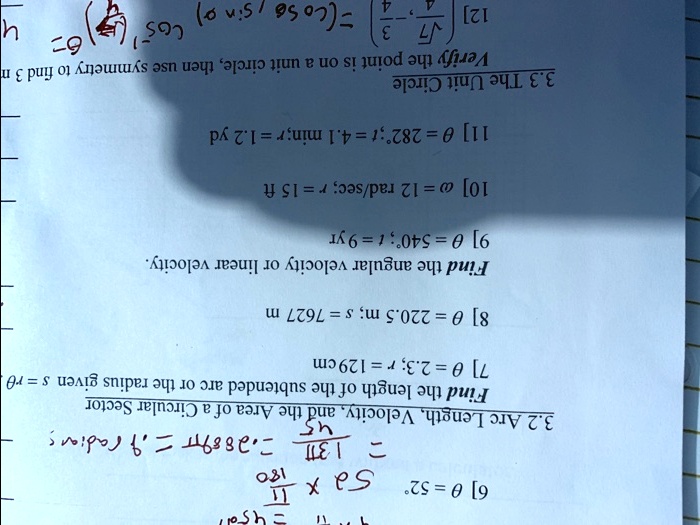 6] θ = 52° 52 × π/180
= 13π/45 = .2889π = .9 radians
3.2 Arc Length, Velocity, and the Area of a Circular Sector
Find the length of the subtended arc or the radius given s = rθ
7] θ = 2.3; r = 129cm
8] θ = 220.5 m; s = 7627 m
Find the angular velocity or linear velocity.
9] θ = 540°; t = 9yr
10] ω = 12 rad/sec; r = 15 ft
11] θ = 282°; t = 4.1 min; r = 1.2 yd
3.3 The Unit Circle
Verify the point is on a unit circle, then use symmetry to find 3
12] (√7/4, -3/4) = (cosθ, sinθ) cos⁻¹